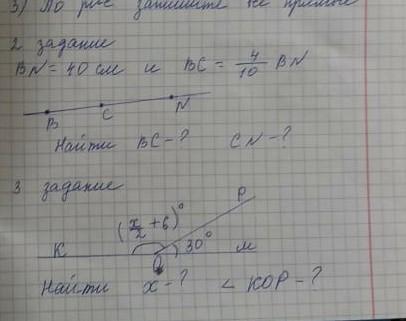 3) По рис запишите не прямые
2 задание
BN = 40 см и BC = 4/10 BN
B C N
Найти BC - ? CN - ?
3 задание
P
(x/2 + 6)°
K 30° м
O
Найти x - ? < KOP - ?